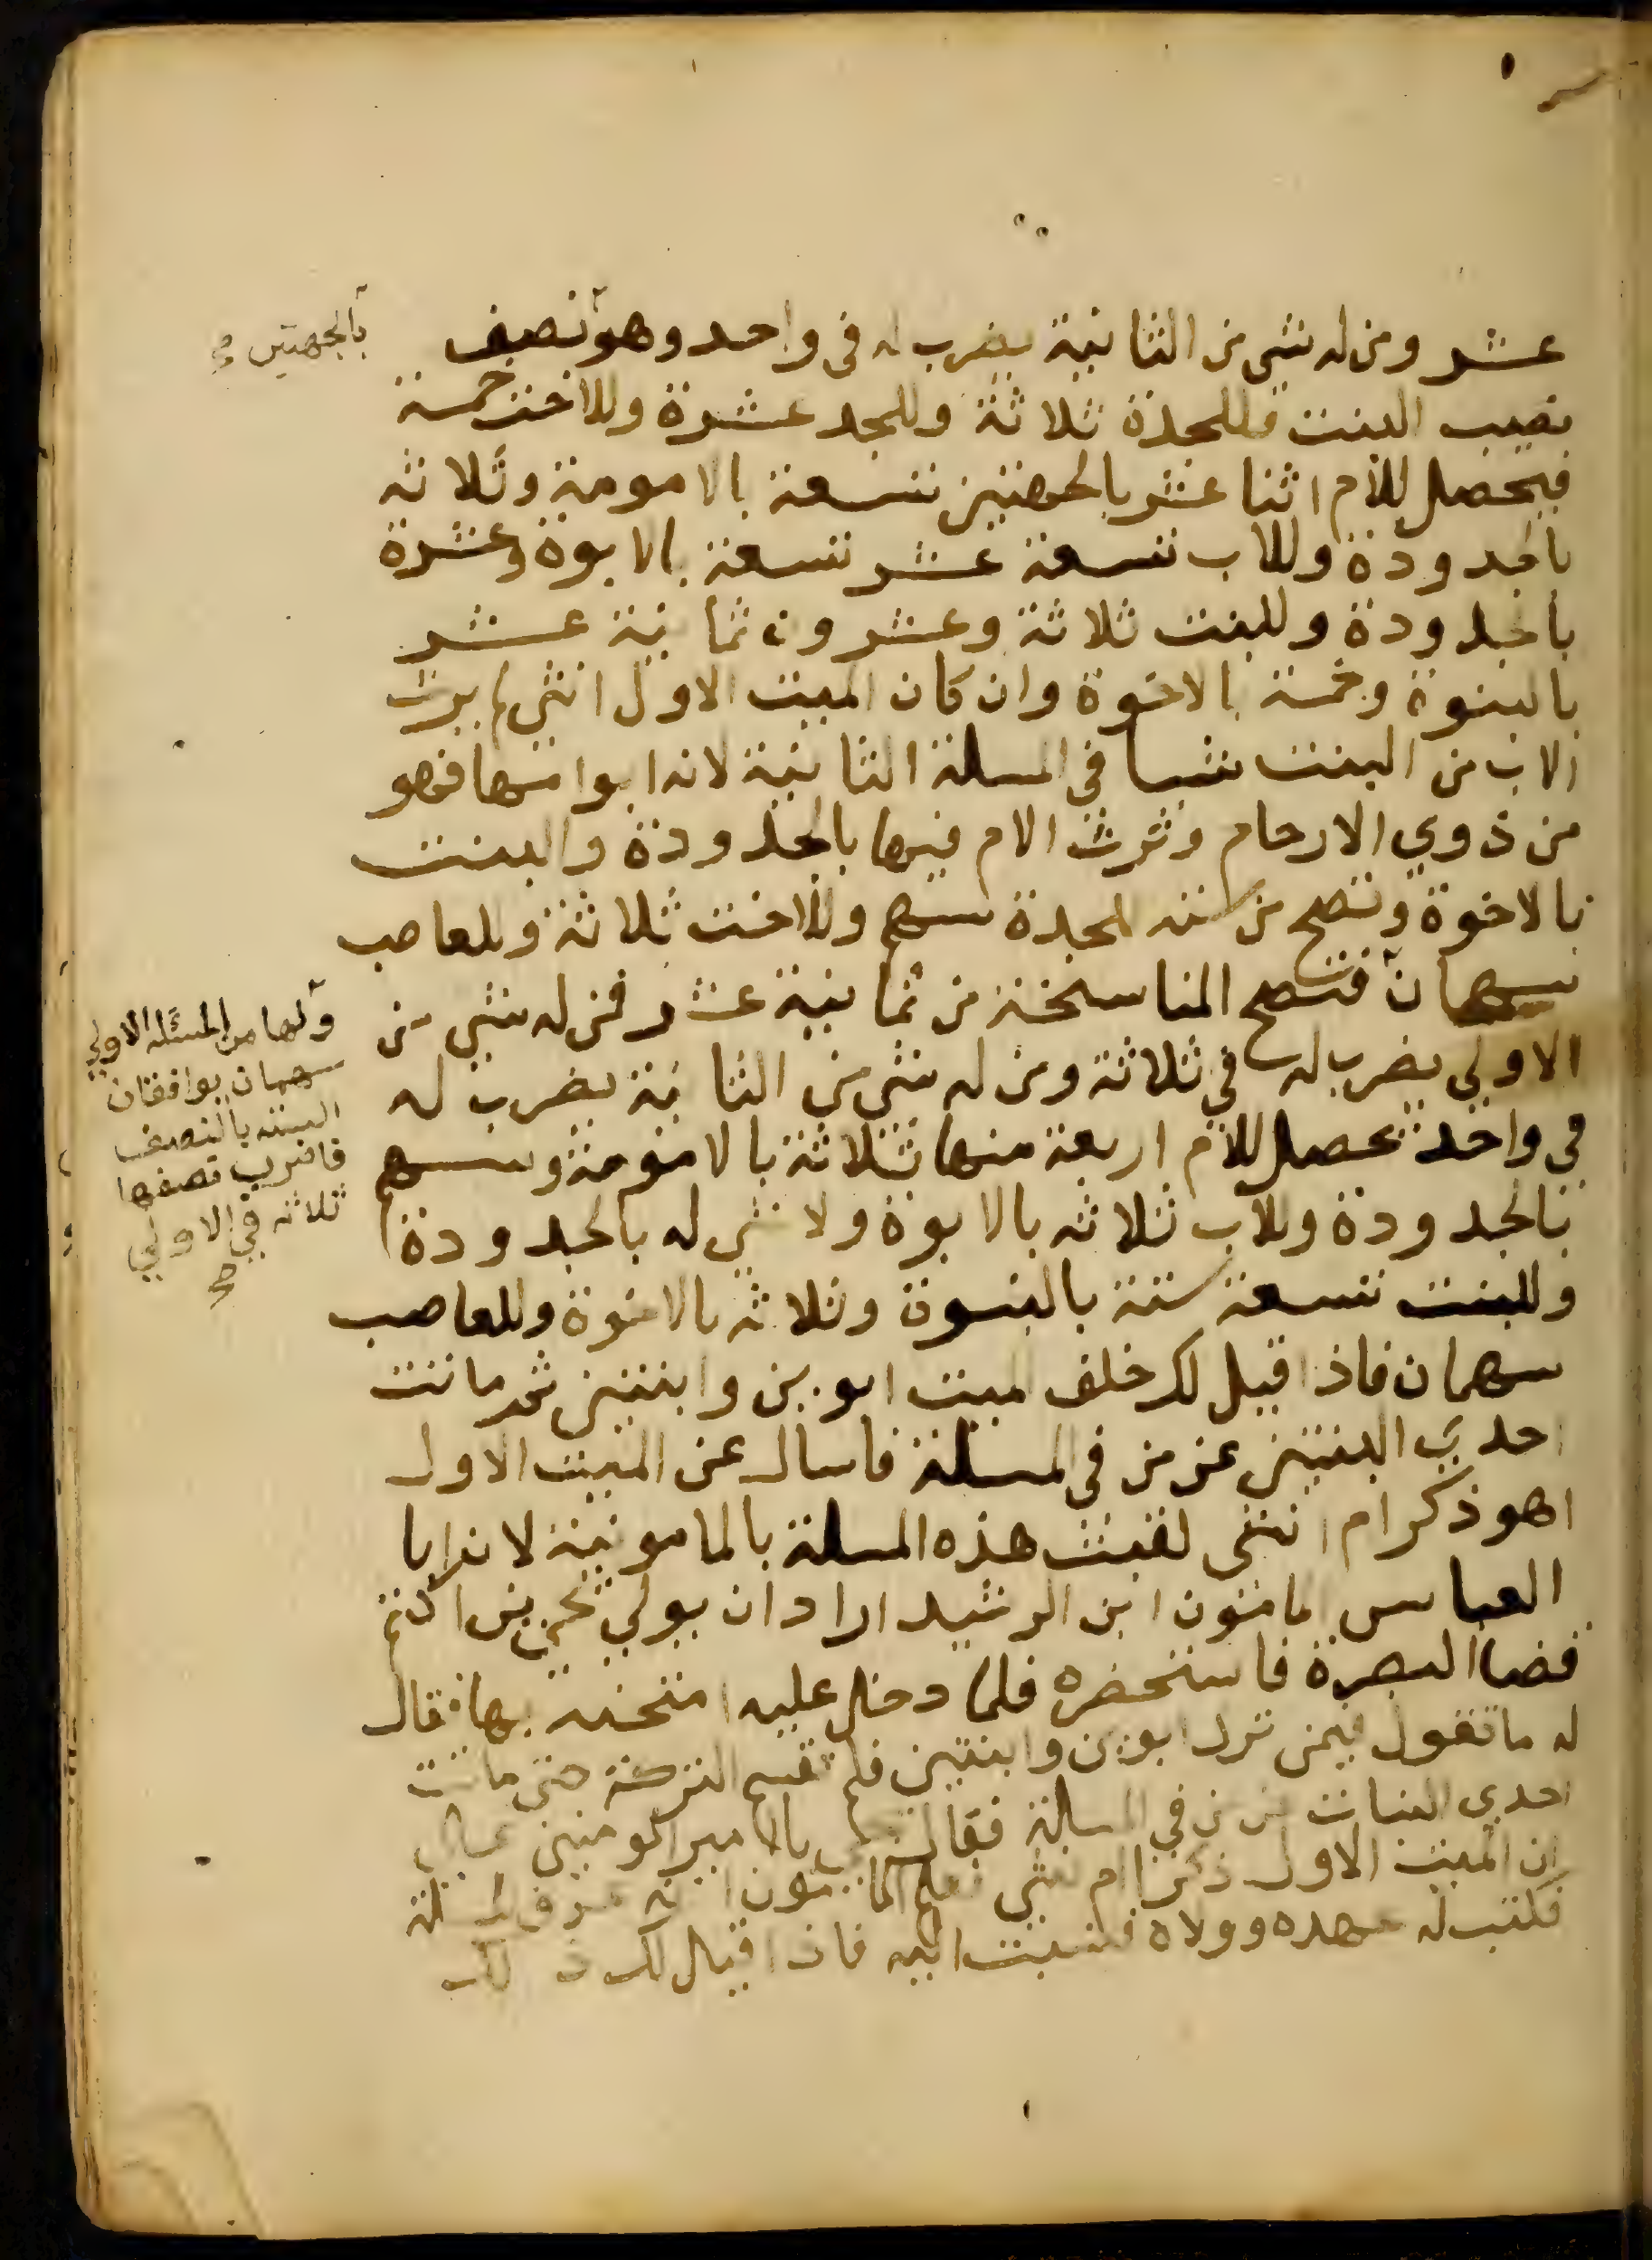 عشر ومن له شي من الثانية يضرب له في واحد وهو نصف
بالجهتين صح
نصيب البنت فللجدة ثلاثة وللجد عشرة وللاخت خمسة
فيحصل للام اثنا عشر بالجهتين تسعة بالامومة وثلاثه
بالجدودة وللاب تسعة عشر تسعة بالابوة وعشرة
بالجدودة وللبنت ثلاثة وعشرون ثمانية عشر
بالبنوة وخمسة بالاخوة وان كان الميت الاول انثي لم يرث
الاب من البنت شيا في المسلة الثانية لانه ابوا امها فهو
من ذوي الارحام وترث الام فيها بالجدودة والبنت
بالاخوة وتصح من سته للجدة سهم وللاخت ثلاثة وللعاصب
سهمان فتصح المناسخة من ثمانية عشر فمن له شي من
الاولي يضرب له في ثلاثة ومن له شي من الثانية يضرب له
في واحد تحصل للام اربعة منها ثلاثة بالامومة وسهم
بالجدودة وللاب ثلاثه بالابوة ولا شي له بالجدودة
وللبنت تسعة ستة بالبنوة وثلاثه بالاخوة وللعاصب
سهمان فاذا قيل لك خلف ميت ابوين وابنتين ثم ماتت
احدي البنتين عن من في المسلة فاسال عن الميت الاول
اهو ذكر ام انثى لقبت هذه المسلة بالمامونية لان ابا
العباس المامون ابن الرشيد اراد ان يولي يحيي بن اكثم
قضا البصرة فاستحضره فلما دخل عليه امتحنه بها فقال
له ما تقول فيمن ترك ابوين وابنتين فلم تقسم التركة حتى ماتت
احدي البنات عن من في المسلة فقال يا امير المومنين
ان الميت الاول ذكرا ام انثي فعلم المامون انه عرف المسلة
فكتب له عهده وولاه فنسبت اليه فاذا قيل لك ذلك
ولها من المسئله الاولي
سهمان يوافقان
السته بالنصف
فاضرب نصفها
ثلاثه في الاولي
صح